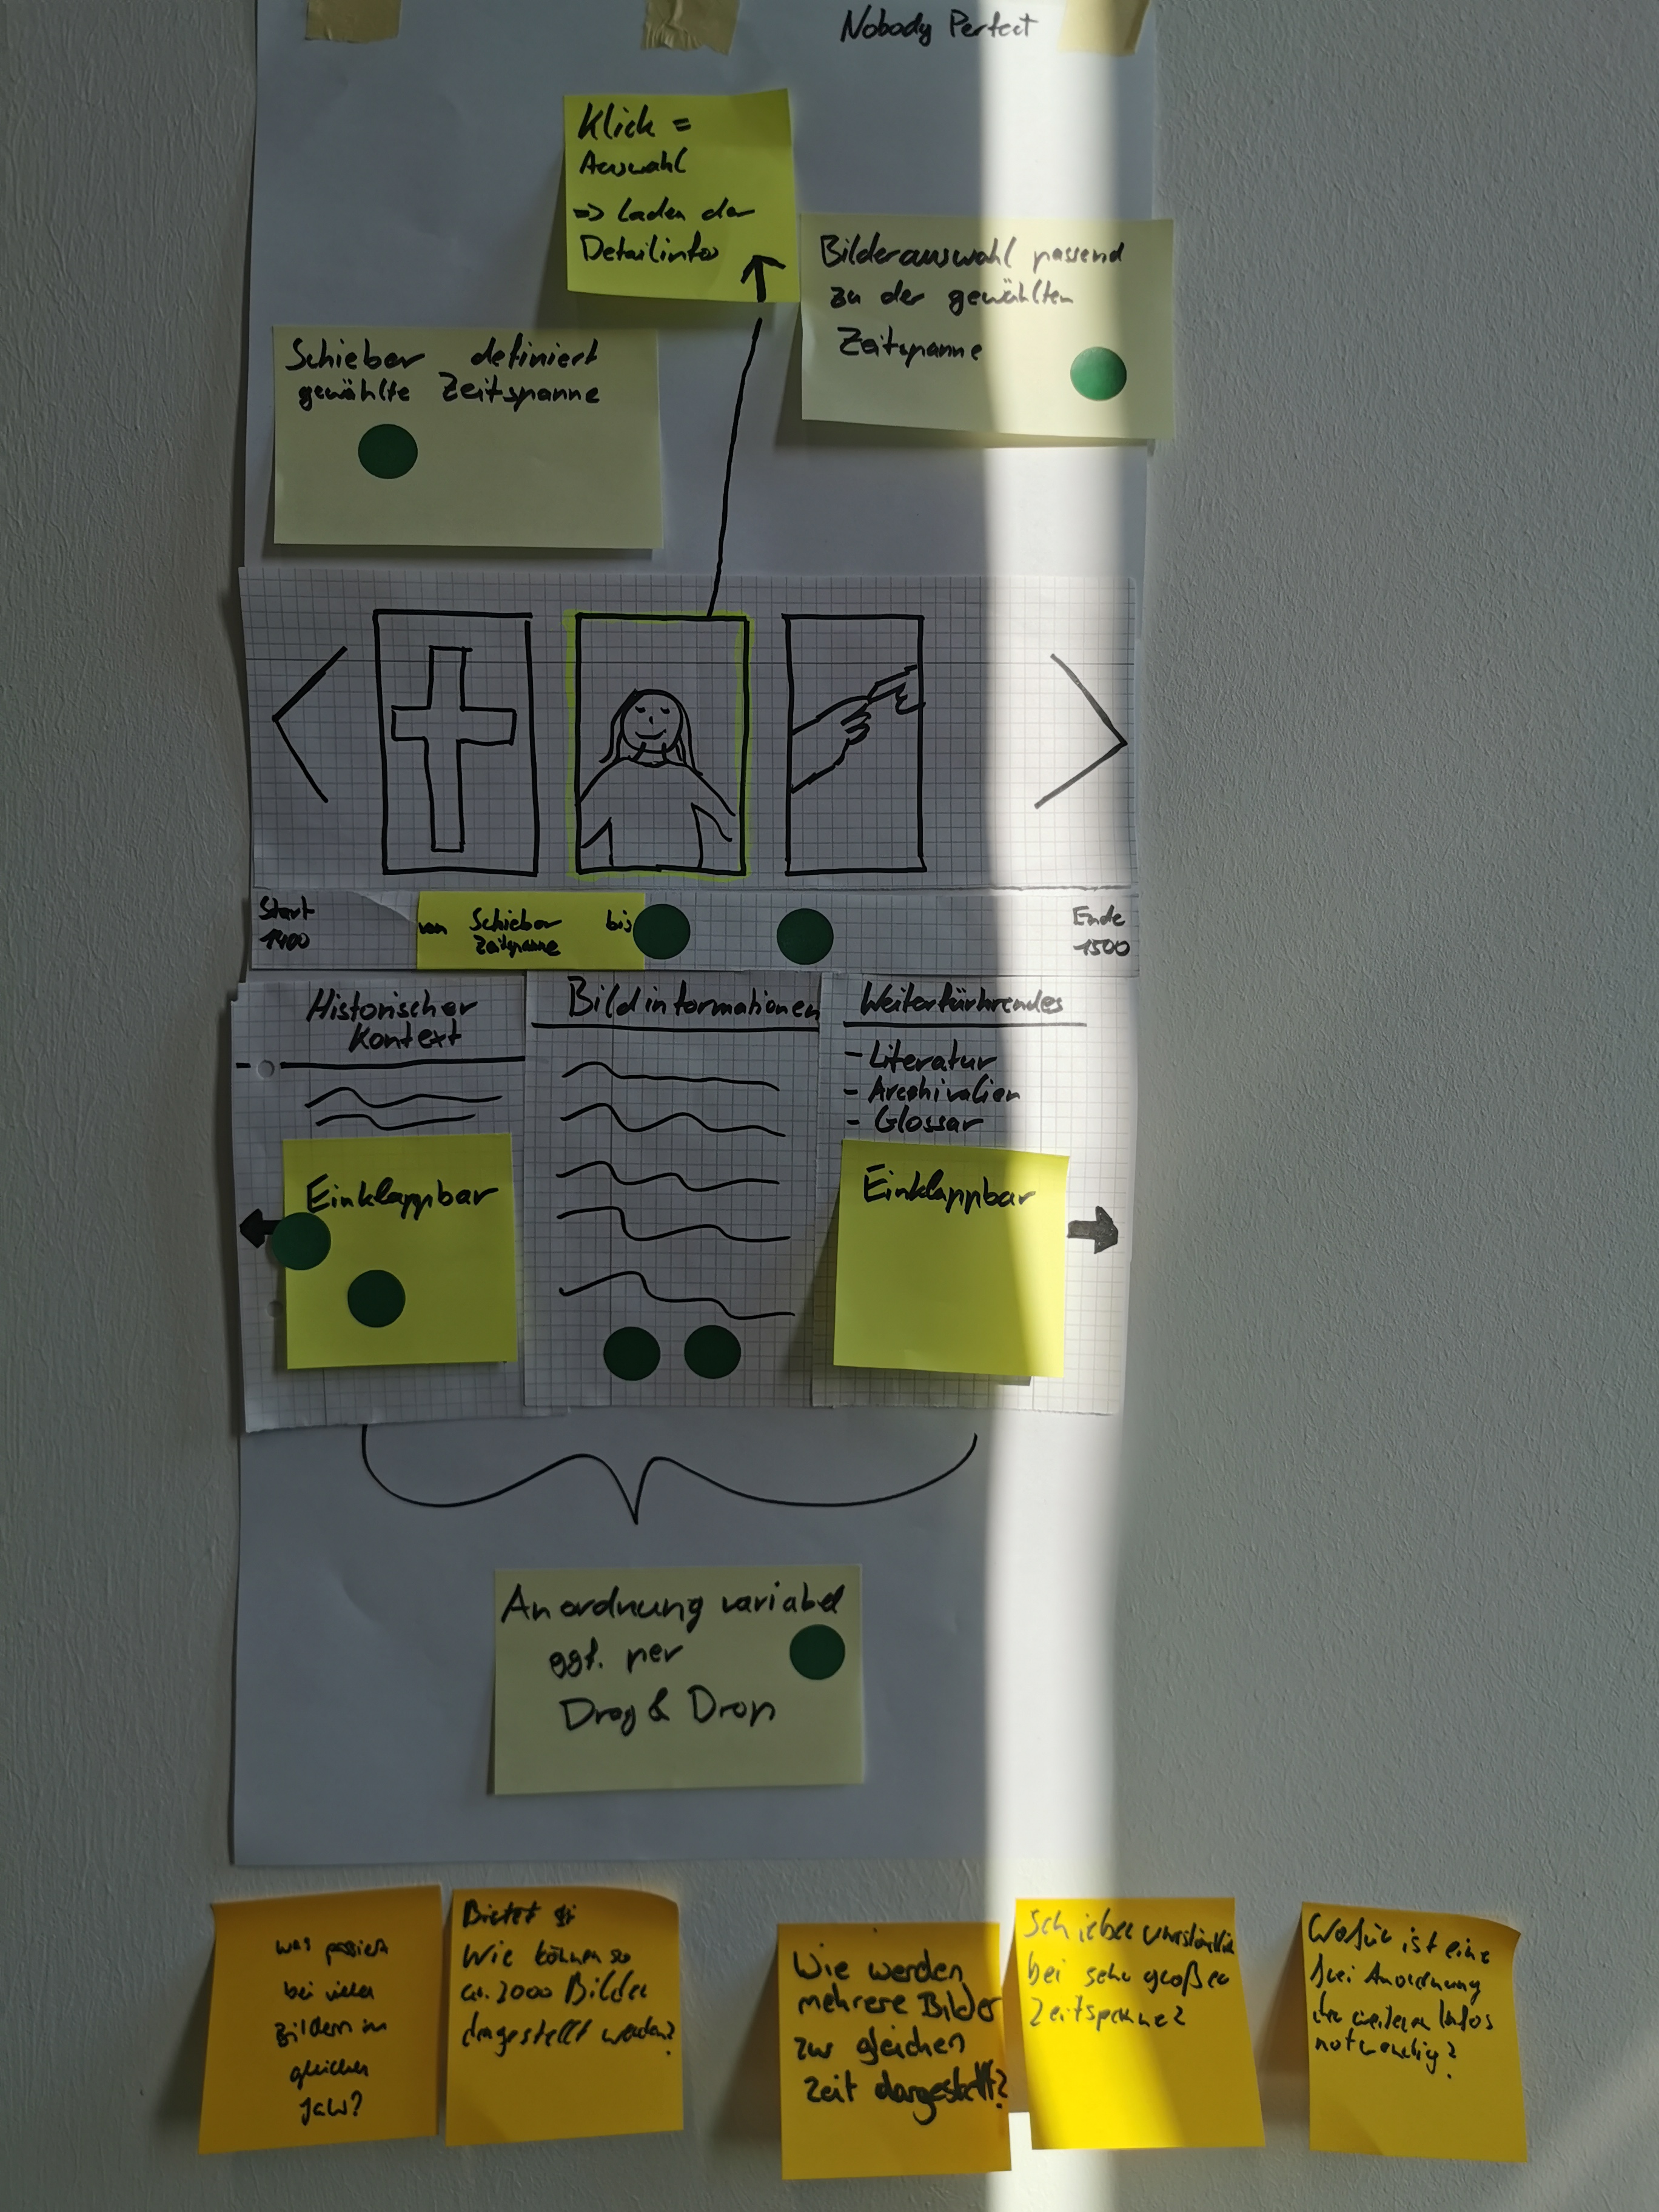 Nobody Perfect
Klick =
Auswahl
=> Laden der
Detailinfos
Bilderauswahl passend
zu der gewählten
Zeitspanne
Schieber definiert
gewählte Zeitspanne
Start
1400
von Schieber bis
Zeitspanne
Ende
1500
Historischer
Kontext
Bildinformationen
Weiterführendes
- Literatur
- Archivalien
- Glossar
Einklappbar
Einklappbar
Anordnung variabel
ggf. per
Drag & Drop
was passiert
bei vielen
Bildern im
gleichen
Jahr?
Bietet
Wie können so
ca. 2000 Bilder
dargestellt werden?
Wie werden
mehrere Bilder
zur gleichen
Zeit dargestellt?
Schieber umständlich
bei sehr großer
Zeitspanne?
Wofür ist eine
frei Anordnung
der weiteren Infos
notwendig?